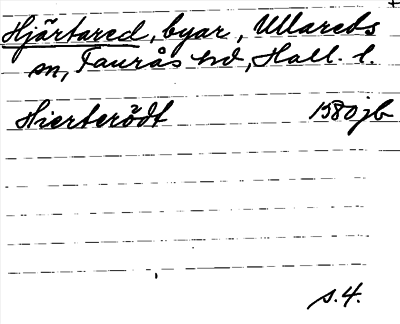 Hjärtared, byar, Ullareds
sn, Faurås hd, Hall. l.
Hierterödt 1580 jb
s. 4.